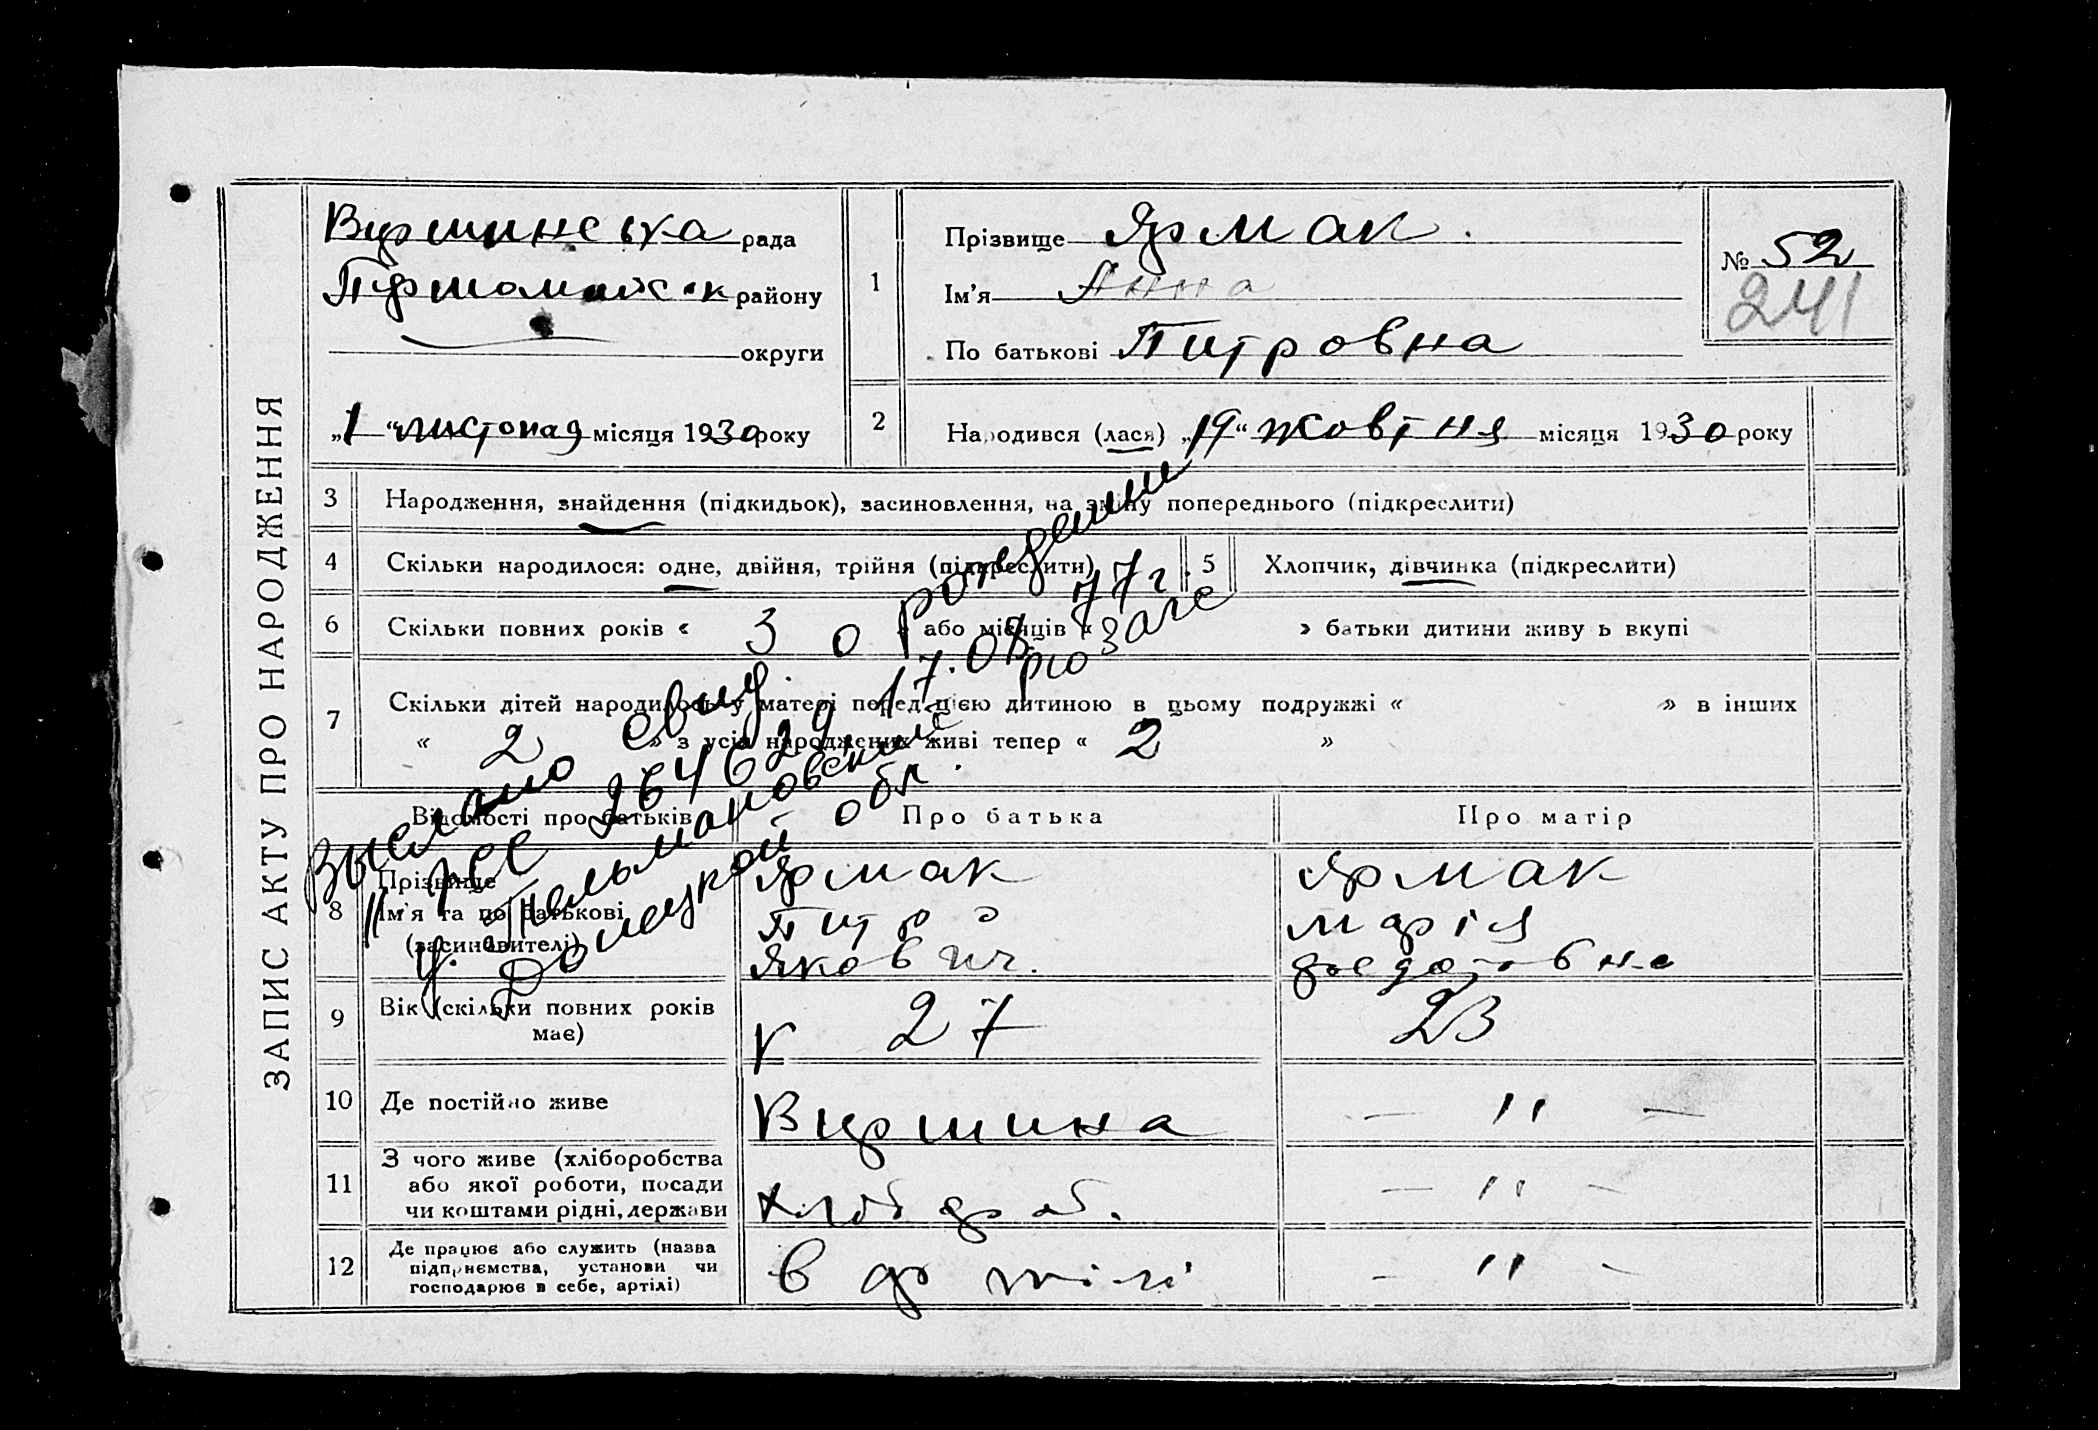 ЗАПИС АКТУ ПРО НАРОДЖЕННЯ
Вершинська рада
Первомайськ району
округи
„1“ листопад місяця 1930 року
1
Прізвище Ярмак
Ім’я Анна
По батькові Питровна
№ 52
241
2
Народився (лася) „19“ жовтня місяця 1930 року
3 Народження, знайдення (підкидьок), засиновлення, на зміну попереднього (підкреслити)
4 Скільки народилося: одне, двійня, трійня (підкреслити)
5 Хлопчик, дівчинка (підкреслити)
6 Скільки повних років « 3 » або місяців « » батьки дитини живу ь вкупі
7 Скільки дітей народилось у матері перед цією дитиною в цьому подружжі « » в інших
« 2 » з усіх народжених живі тепер « 2 »
Выслано свид. о рождении
II 264629 17.08.77г.
Тельмановский рю загс
Донецкой обл.
Відомості про батьків
Про батька
Про матір
8
Прізвище
Ім’я та по батькові
(засиновителі)
Ярмак
Питро
Якович.
Ярмак
Марія
Федотовна
9 Вік (скільки повних років
має)
27
23
10 Де постійно живе
Вершина
— " —
11
З чого живе (хліборобства
або якої роботи, посади
чи коштами рідні, держави
хліб роб.
— " —
12
Де працює або служить (назва
підпрнємства, установи чи
господарює в себе, артілі)
в артілі
— " —